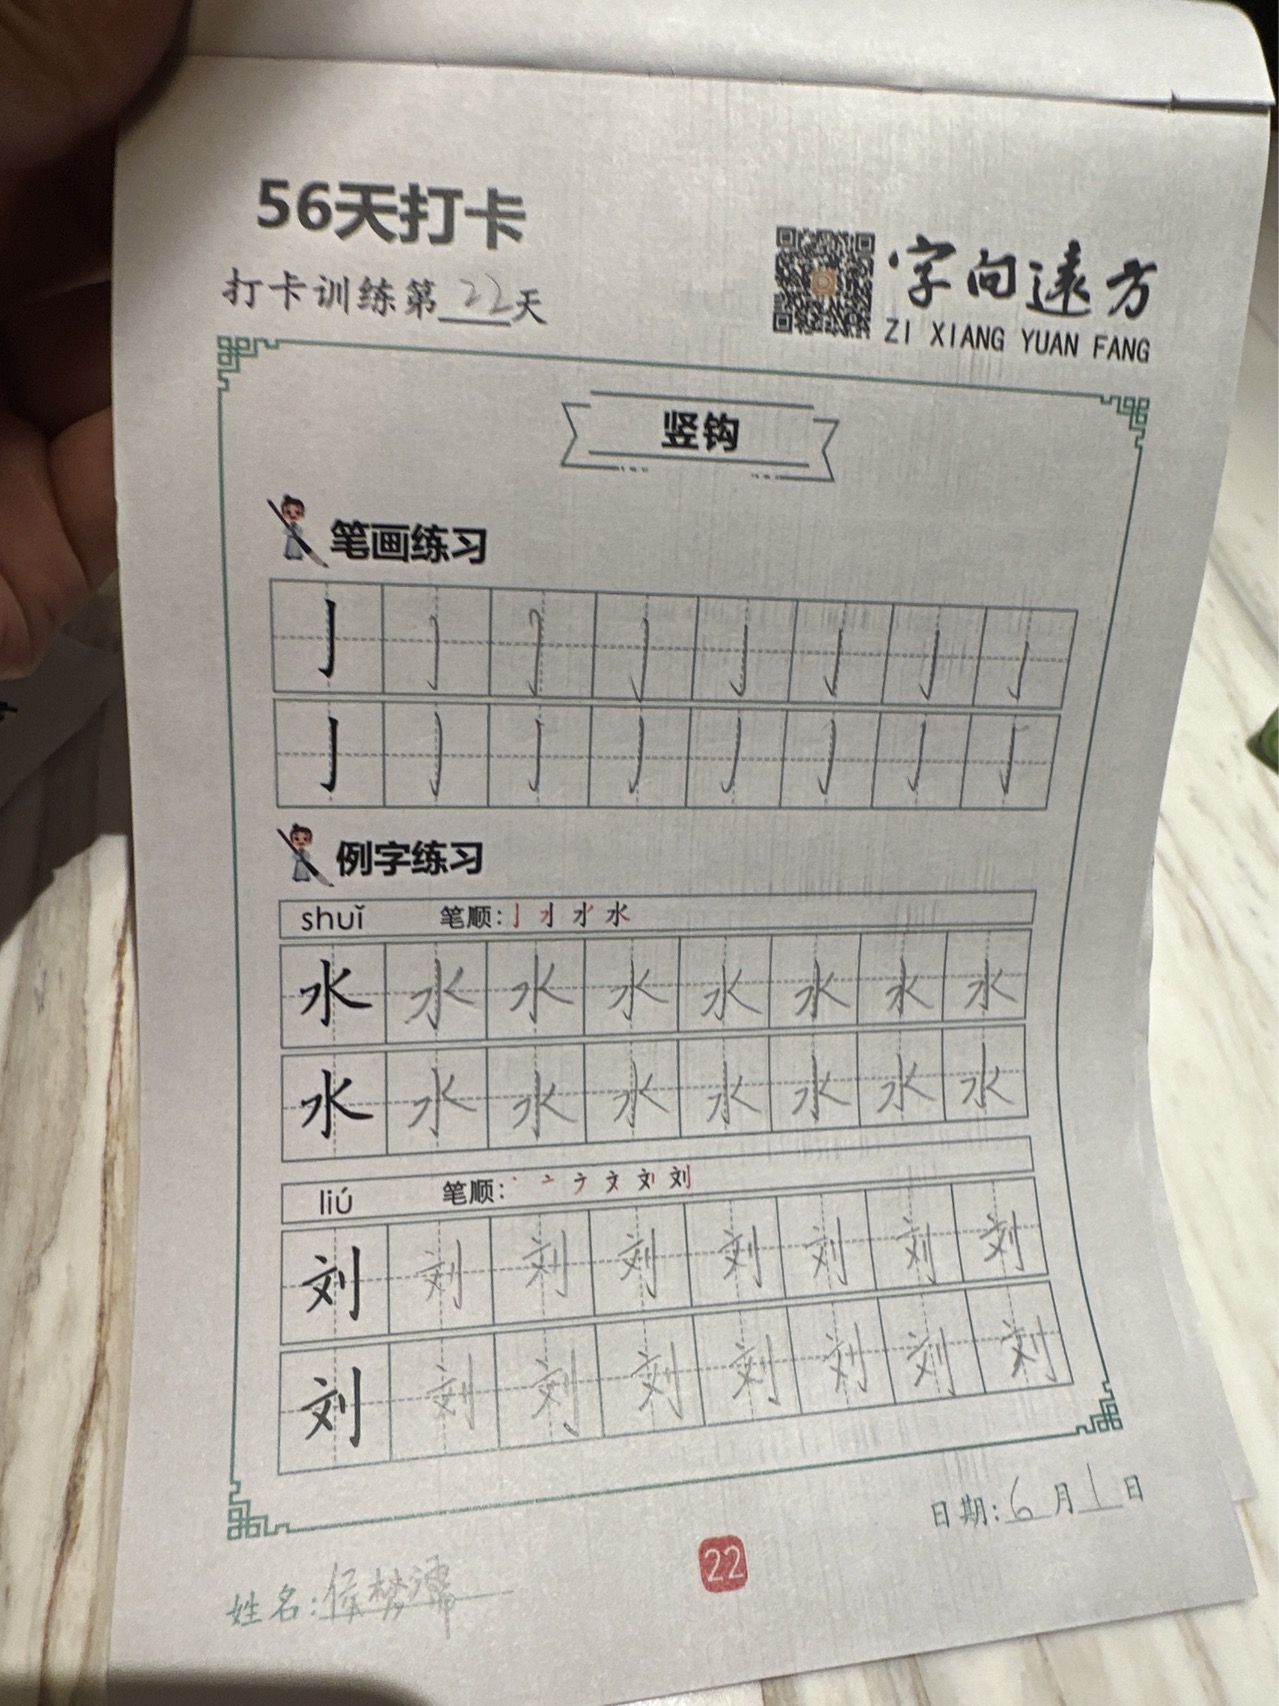 56天打卡
打卡训练第22天
字向遠方
ZI XIANG YUAN FANG
竖钩
笔画练习
亅 亅 亅 亅 亅 亅 亅 亅
亅 亅 亅 亅 亅 亅 亅 亅
例字练习
shuǐ 笔顺:
水 水 水 水 水 水 水 水
水 水 水 水 水 水 水 水
liú 笔顺:
刘 刘 刘 刘 刘 刘 刘 刘
刘 刘 刘 刘 刘 刘 刘 刘
日期:6月1日
22
姓名:侯梦